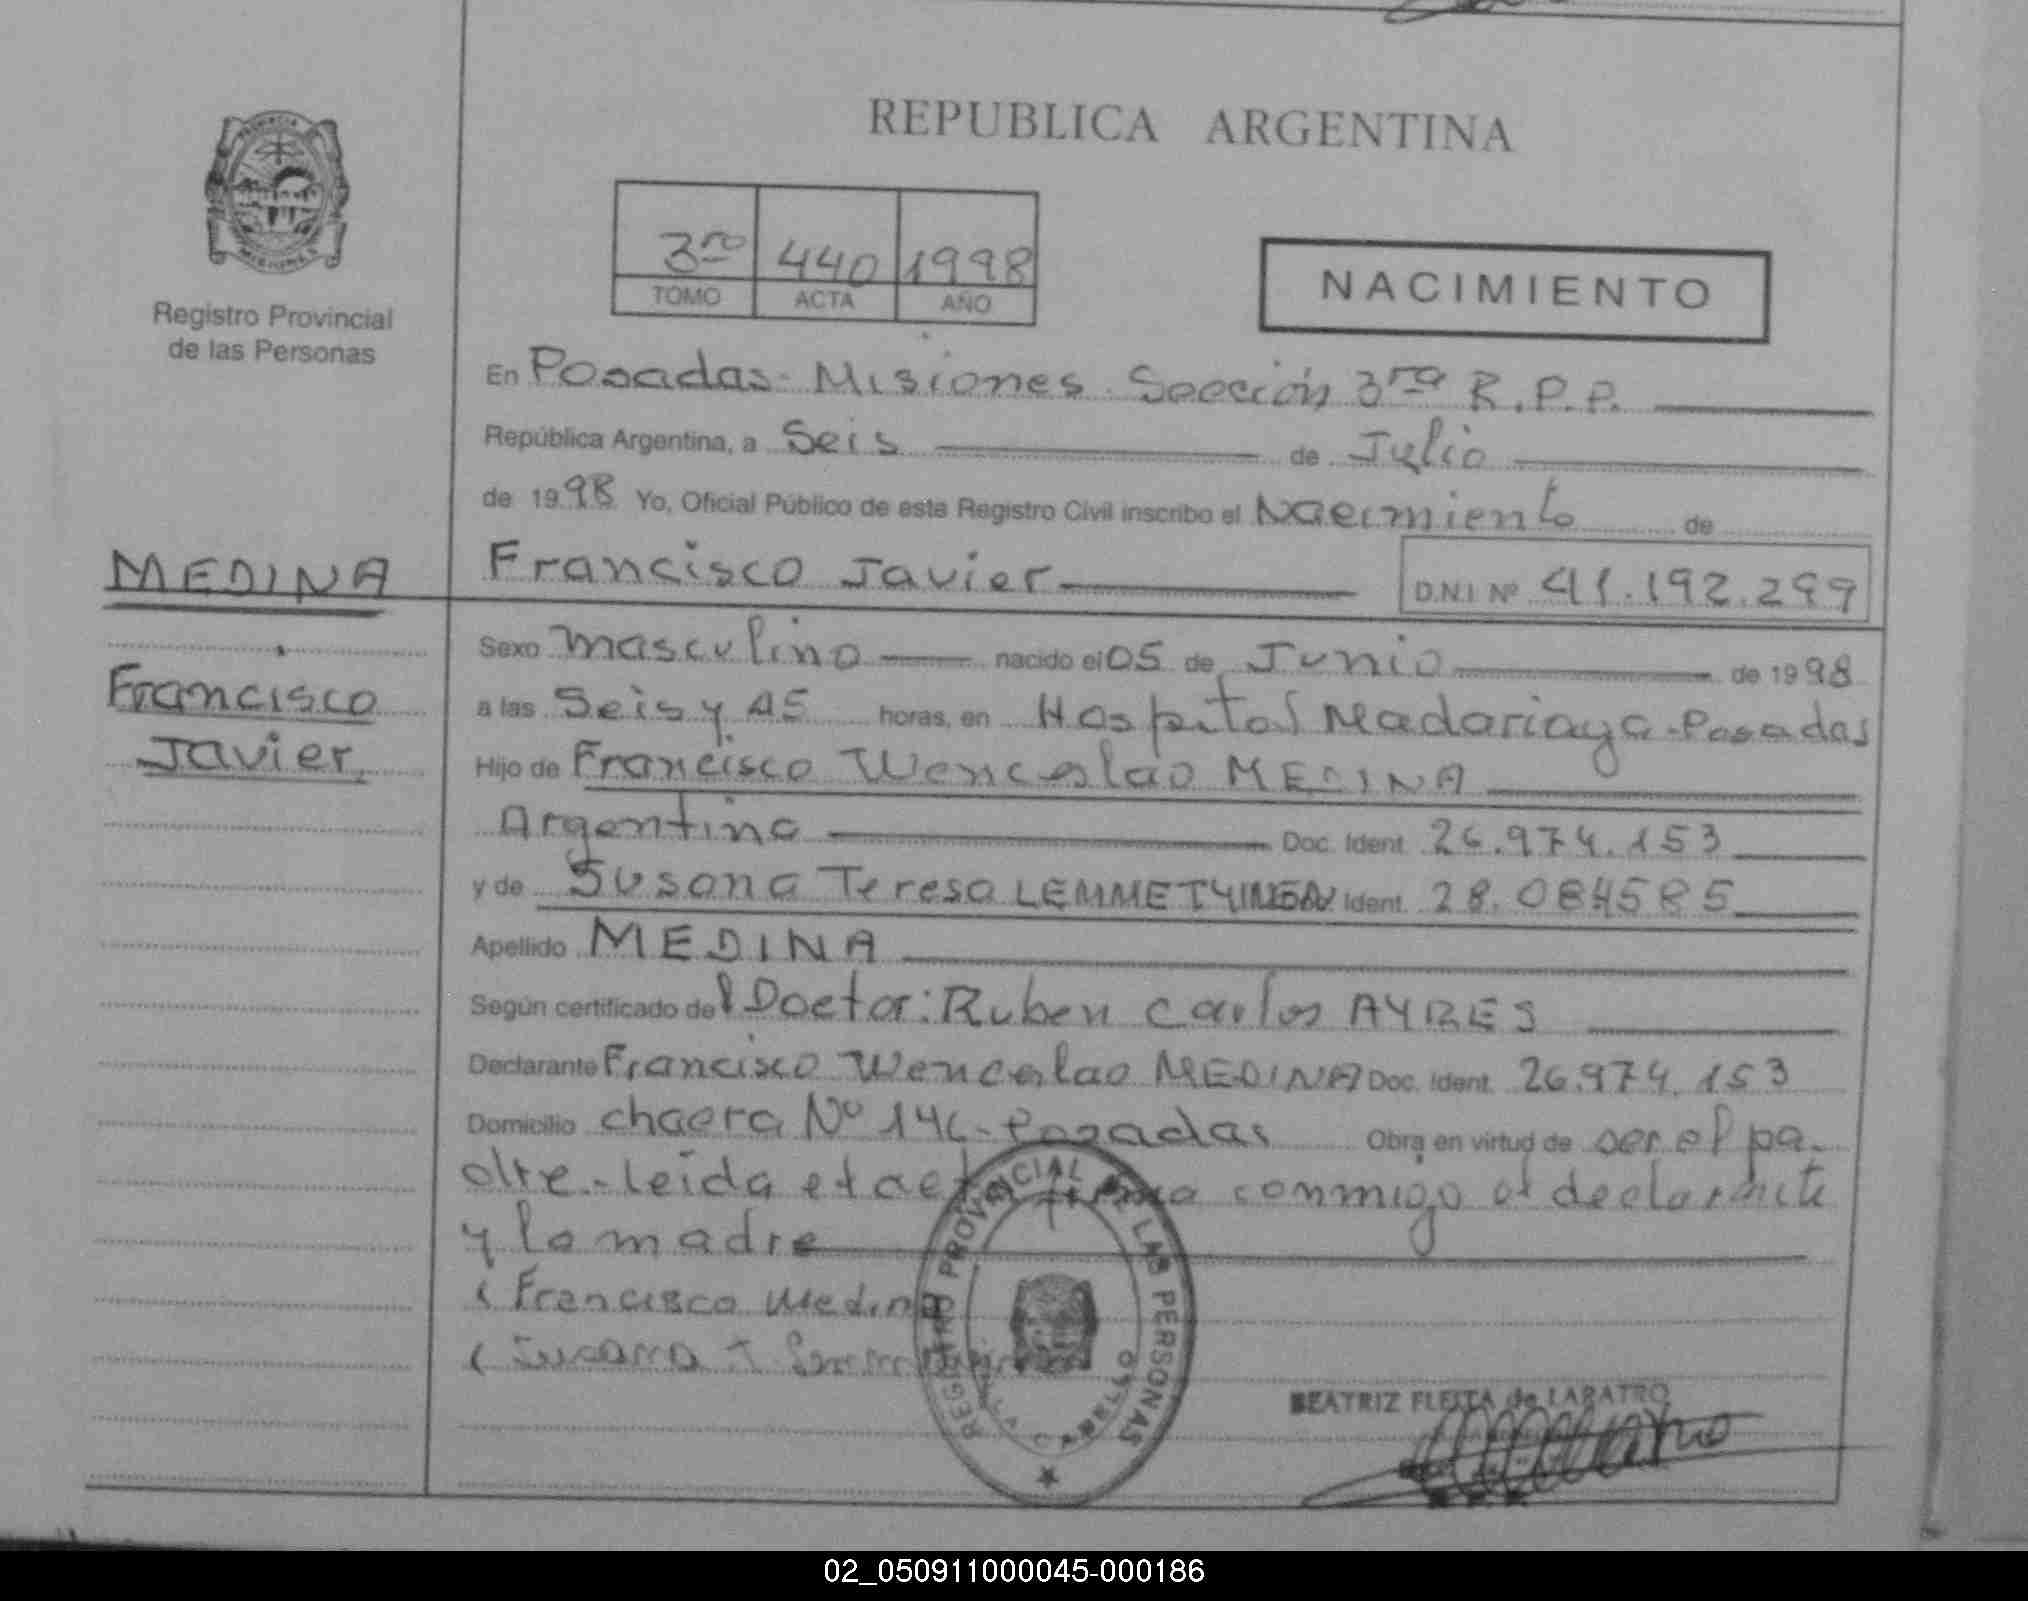 REPUBLICA ARGENTINA
PROVINCIA
MISIONES
Registro Provincial
de las Personas
3ro 440 1998
TOMO ACTA AÑO
NACIMIENTO
En Posadas - Misiones Sección 3ra R.P.P.
República Argentina, a Seis de Julio
de 1998 Yo, Oficial Público de este Registro Civil inscribo el Nacimiento de
MEDINA
Francisco Javier D.N.I. Nº 41.192.299
Francisco
Javier
Sexo Masculino nacido el 05 de Junio de 1998
a las Seis y 45 horas, en Hospital Madariaga - Posadas
Hijo de Francisco Wenceslao MEDINA
Argentino Doc. Ident. 26.974.153
y de Susana Teresa Ident. 28.084585
Apellido MEDINA
Según certificado del Doctor: Ruben Carlos AYRES
Declarante Francisco Wenceslao MEDINA Doc. Ident. 26.974.153
Domicilio chacra Nº 146 - Posadas Obra en virtud de ser el pa-
dre - leida el acta firma conmigo el declarante
y la madre
( Francisco Medina
( Susana T.
REGISTRO PROVINCIAL DE LAS PERSONAS
BEATRIZ FLEITA de LABATRO
02_050911000045-000186